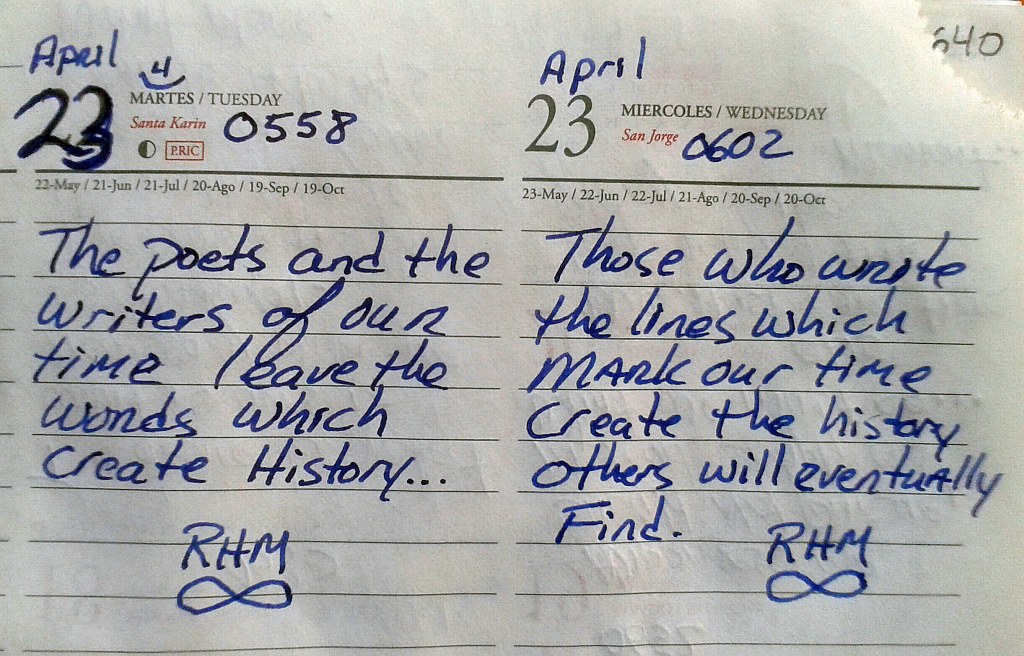 April
4
23 MARTES / TUESDAY
Santa Karin 0558
P.RIC
22-May / 21-Jun / 21-Jul / 20-Ago / 19-Sep / 19-Oct
The poets and the
writers of our
time leave the
words which
create History...
RHM
640
April
23 MIERCOLES / WEDNESDAY
San Jorge 0602
23-May / 22-Jun / 22-Jul / 21-Ago / 20-Sep / 20-Oct
Those who wrote
the lines which
MARK our time
create the history
others will eventually
Find.
RHM